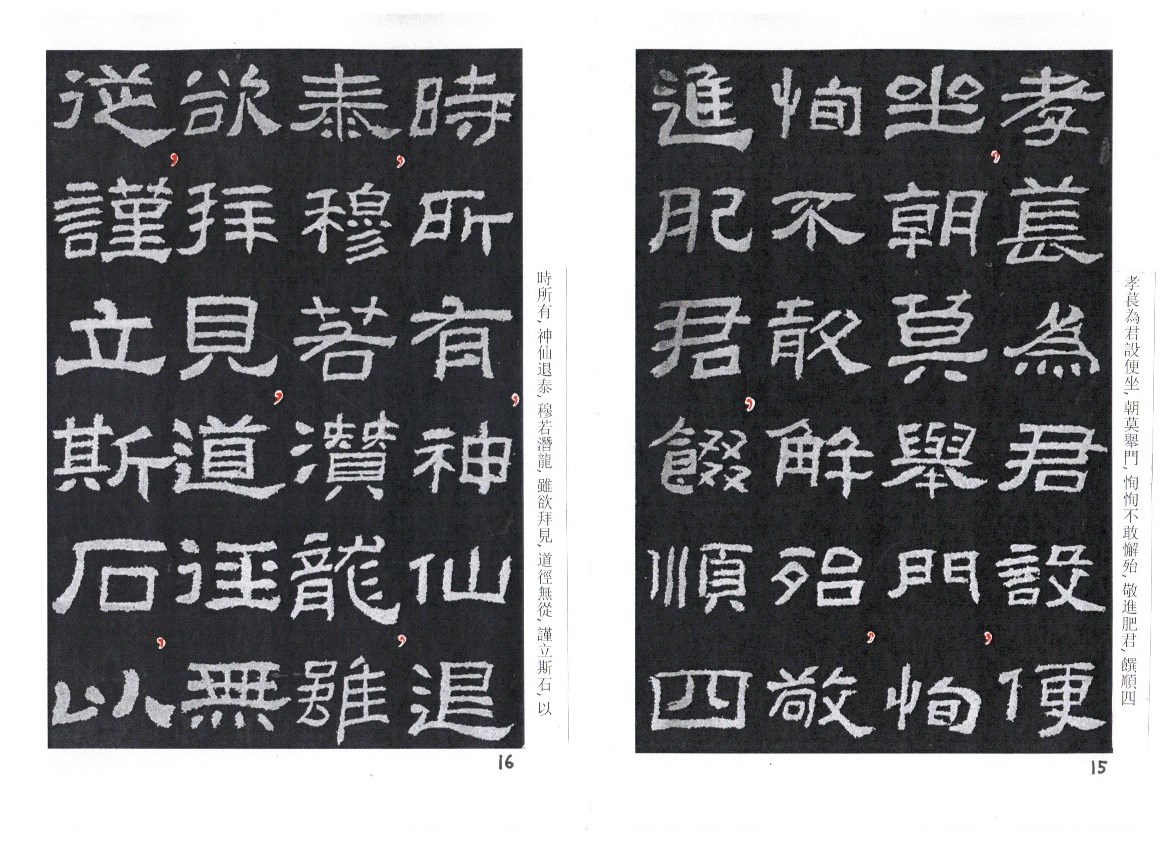 孝萇為君設便坐, 朝莫舉門, 恂恂不敢懈殆, 敬進肥君, 饌順四
孝萇為君設便
坐,朝莫舉門,恂
恂不敢解殆,敬
進肥君,餟順四
15
時所有, 神仙退泰, 穆若潛龍, 雖欲拜見, 道徑無從, 謹立斯石, 以
時所有,神仙退
泰,穆若潛龍,雖
欲拜見,道徑無
從,謹立斯石,以
16